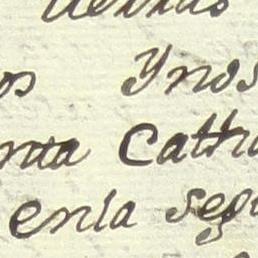 os Ynos
nta Catha
enla segu